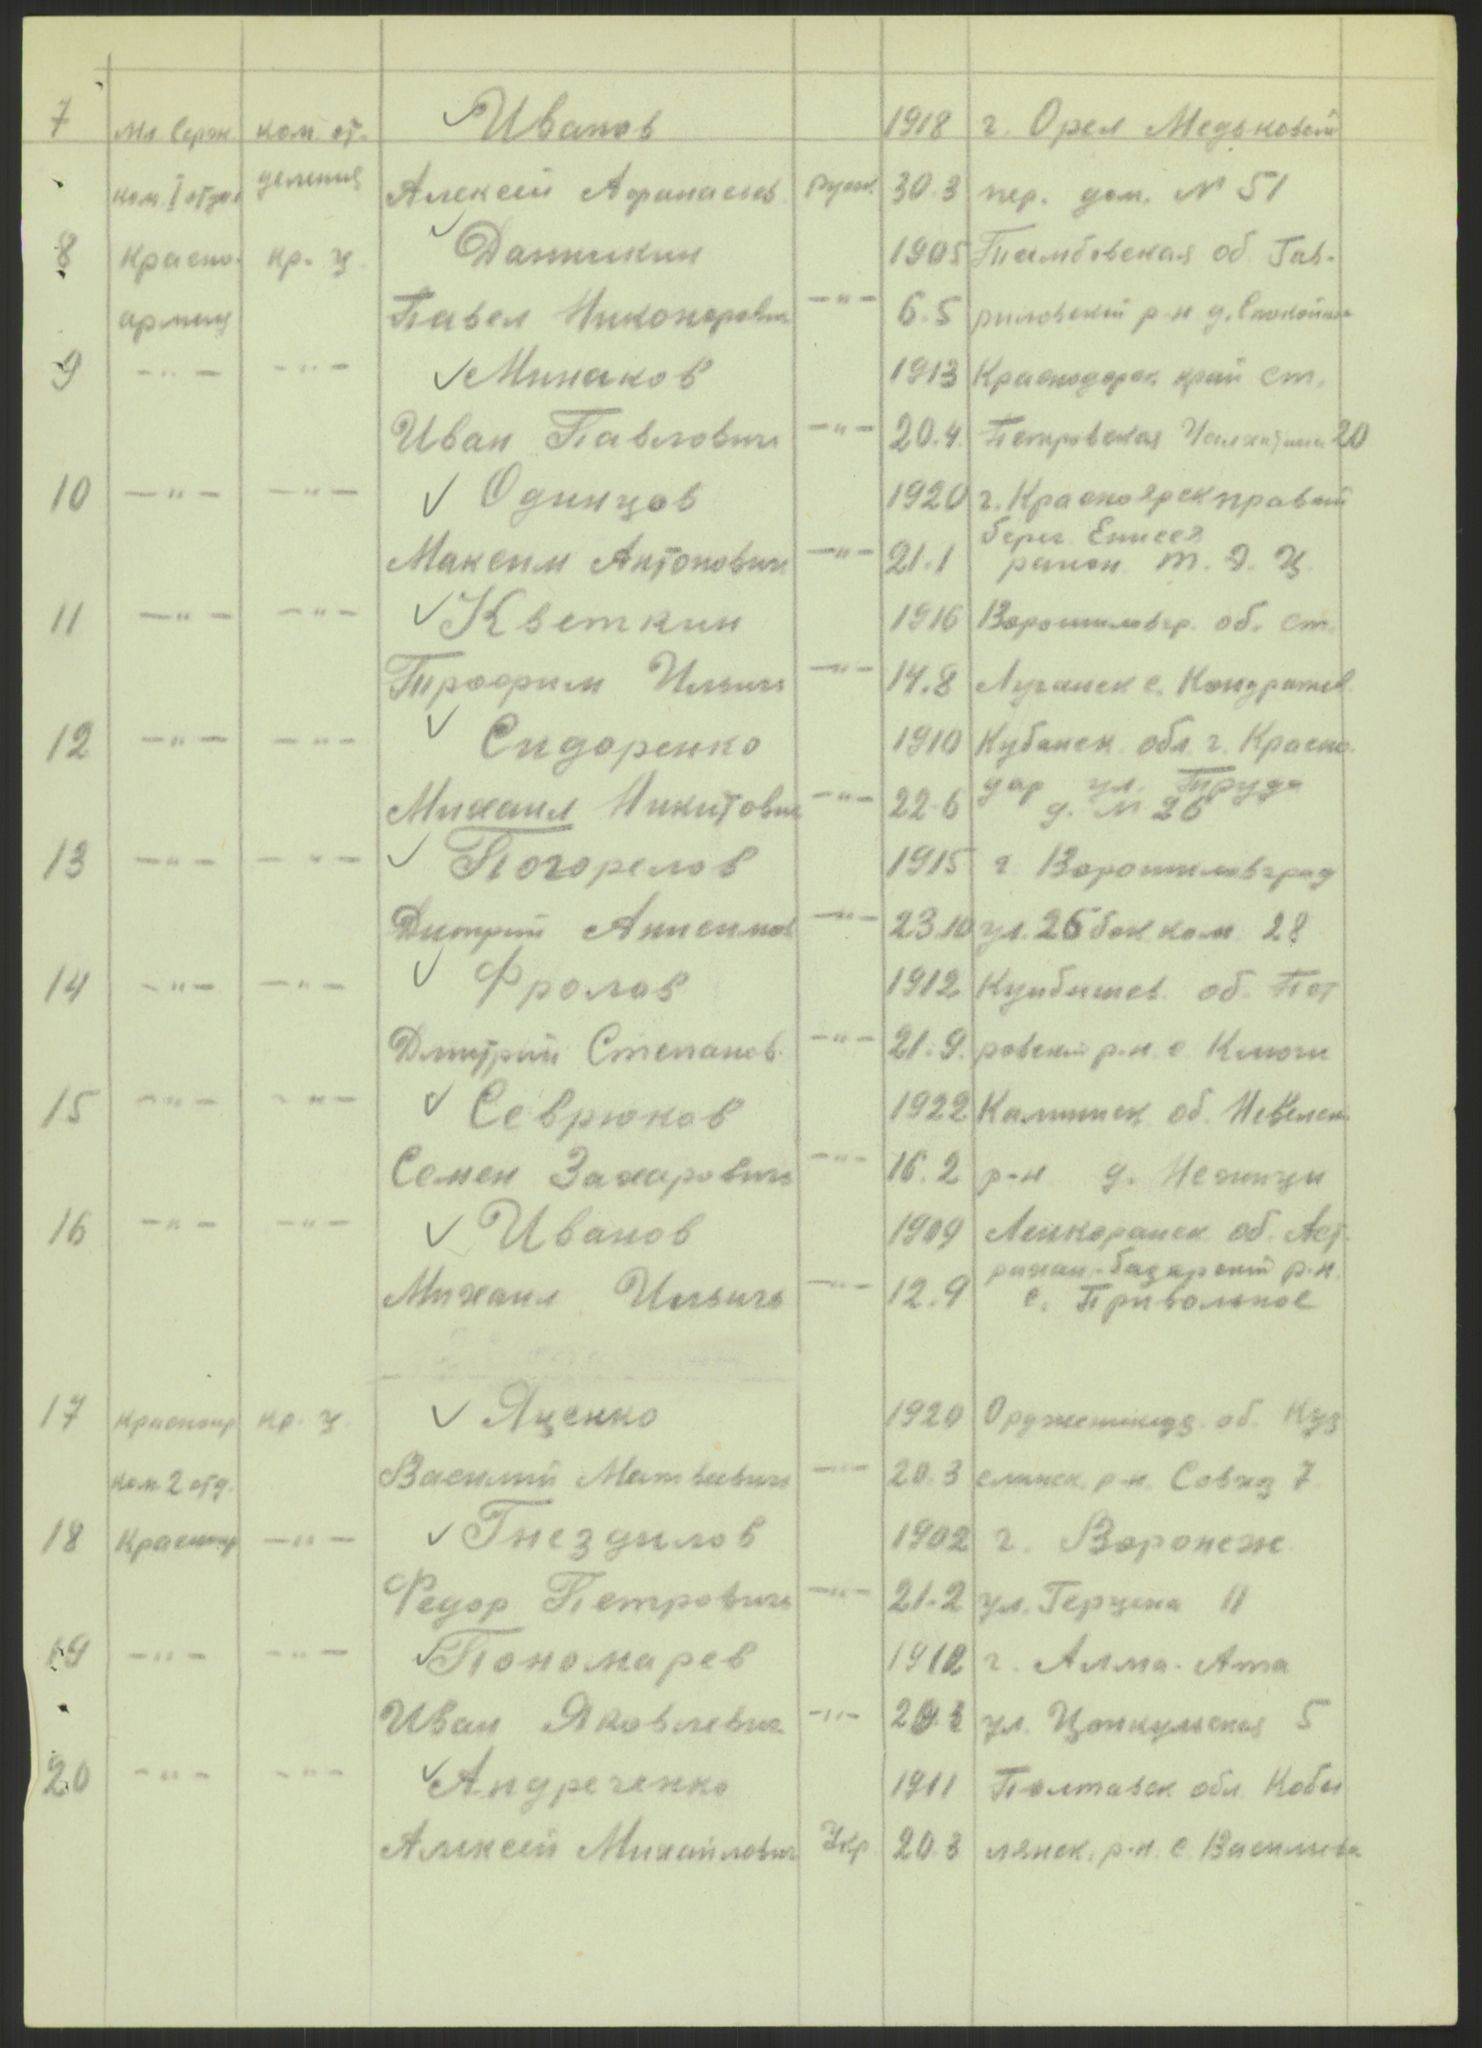 7 Мл Серж. ком. от- Иванов 1918 г. Орел Медьковский
ком. I отдел деления Алексей Афанасьев. русск. 30.3 пер. дом. № 51
8 Красно- кр. ц. Данникин 1905 Тамбовская об. Гав-
армец Павел Никонорович —"— 6.5 риловский р-н д.
9 —"— —"— Минаков 1913 Краснодарск край ст.
Иван Павлович —"— 20.4. Петровская 20
10 —"— —"— Одинцов 1920 г. Красноярск правый
берег Енисея
Максим Антонович —"— 21.1 район Т. Э. Ц.
11 —"— —"— Кветкин 1916 Ворошиловгр. об. ст.
Трофим Ильич —"— 14.8 Луганск с. Кондрашев.
12 —"— —"— Сидоренко 1910 Кубанск. обл. г. Красно-
дар ул. Труда
Михаил Никитович —"— 22.6 д. № 26
13 —"— —"— Погорелов 1915 г. Ворошиловград
Дмитрий Анисимов —"— 23.10 ул. 26 бак. ком. 28
14 —"— —"— Фролов 1912 Куйбышев. об. Пет
Дмитрий Степанов. —"— 21.9. ровский р-н. с. Ключи
15 —"— —"— Севрюков 1922 Калининск об. Невельск
Семен Захарович —"— 16.2 р-н д.
16 —"— —"— Иванов 1909 Ленкоранск. об. Аст-
рахан-базарский р-н.
Михаил Ильичь —"— 12.9 с. Привольное
17 Красноар кр. ц. Яценко 1920 Орджоникидз. об. Куз
ком. 2 отд. Василий Матвеевич —"— 20.3 р-н. Совхз 7
18 Красноар —"— Гнездилов 1902 г. Воронеж
Федор Петрович —"— 21.2 ул. Герцена 11
19 —"— —"— Пономарев 1912 г. Алма-Ата
Иван Яковлевич —"— ул. 5
20 —"— —"— Андреченко 1911 Полтавск обл. Кобы
Алексей Михайлович Укр. 20.3 лянск. р-н. с. Василивка